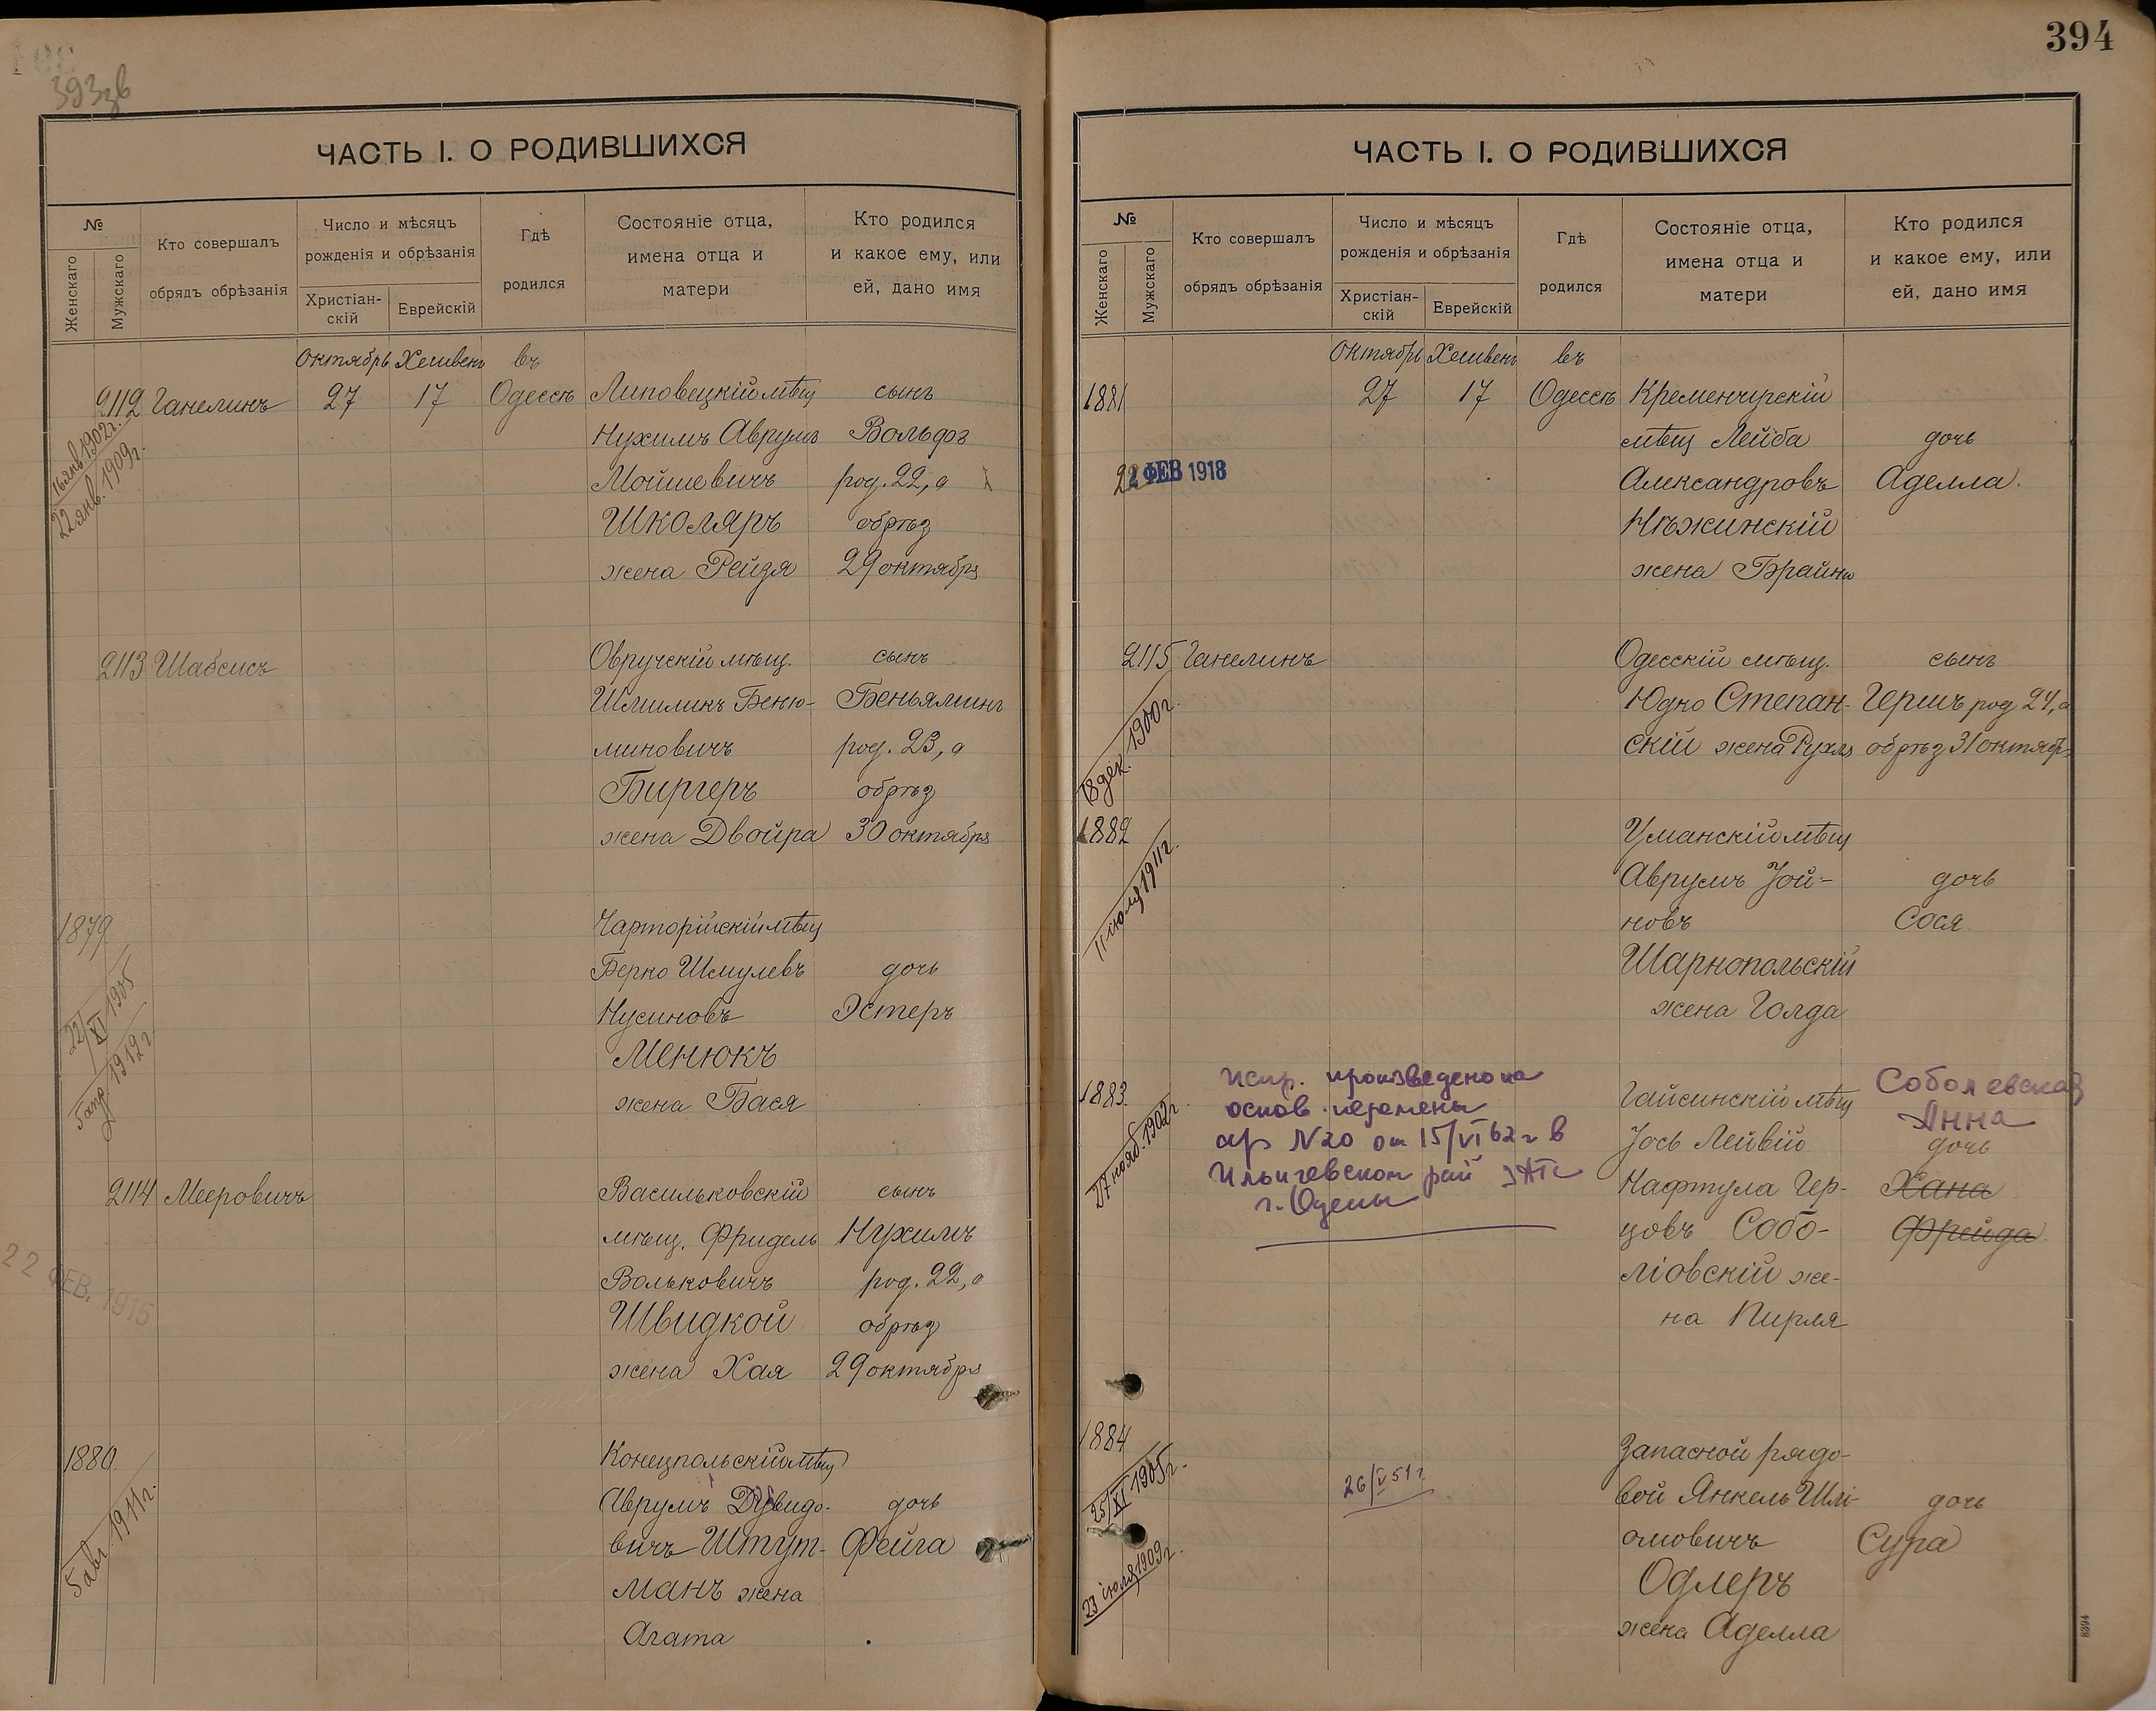 393зв
ЧАСТЬ I. О РОДИВШИХСЯ
№
Женскаго
Мужскаго
Кто совершалъ
обрядъ обрѣзанія
Число и мѣсяцъ
рожденія и обрѣзанія
Христіан-
скій
Еврейскій
Гдѣ
родился
Состояніе отца,
имена отца и
матери
Кто родился
и какое ему, или
ей, дано имя
Октябрь Хешвенъ въ
2112 Ганелинъ 27 17 Одессѣ Липовецкій мѣщ сынъ
16 янв. 1902 г.
22 янв. 1909 г.
Нухимъ Аврумъ Вольфъ
Мойшевичъ род. 22, а
Школяръ обрѣз
жена Рейзя 29 октября
2113 Шабсисъ Овручскій мѣщ. сынъ
Шлиликъ Беню- Беньяминъ
миновичъ род. 23, а
Биргеръ обрѣз
жена Двойра 30 октября
1879 Чарторійскій мѣщ
Берко Шмулевъ дочь
22/XI 1905
Нусиновъ Эстеръ
5 апр 1912 г
Менюкъ
жена Бася
2114 Мееровичъ Васильковскій сынъ
мѣщ. Фридель Нухимъ
22 ФЕВ. 1915
Вольковичъ род. 22, а
Швидкой обрѣз
жена Хая 29 октября
1880 Конецпольскій мѣщ
5 авг 1911 г.
Аврумъ Дувидо- дочь
вичъ Штут- Фейга
манъ жена
Агата
394
ЧАСТЬ I. О РОДИВШИХСЯ
№
Женскаго
Мужскаго
Кто совершалъ
обрядъ обрѣзанія
Число и мѣсяцъ
рожденія и обрѣзанія
Христіан-
скій
Еврейскій
Гдѣ
родился
Состояніе отца,
имена отца и
матери
Кто родился
и какое ему, или
ей, дано имя
Октябрь Хешвенъ въ
1881 27 17 Одессѣ Кременчугскій
мѣщ Лейба дочь
22 ФЕВ 1918
Александровъ Аделла.
Нѣжинскій
жена Брайна
2115 Ганелинъ Одесскій мѣщ. сынъ
Юдко Степан- Гершъ род 24, а
18 дек. 1900 г.
скій жена Рухля обрѣз 31 октября
1882 Уманскій мѣщ
11 іюля 1911 г.
Аврумъ Іой- дочь
новъ Сося
Шарнопольскій
жена Голда
1883 Гайсинскій мѣщ
27 нояб. 1902 г
Испр. произведено на
основ. перемены
а/з N 20 от 15/VI 62 г в
Ильичевском рай ЗАГС
г. Одессы
Соболевская
Анна
Іось Лейвій дочь
Нафтула Гер- Хана
цовъ Собо- Фрейда
ліовскій же-
на Пирля
1884 Запасной рядо-
25/XI 1905 г.
26/V 51 г
вой Янкель Шлі- дочь
23 іюля 1909 г.
омовичъ Сура
Одлеръ
жена Аделла